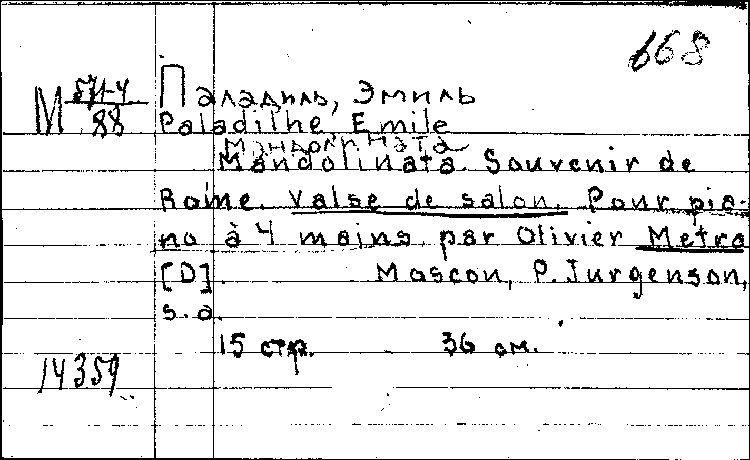 668
М 571-4/88
Паладиль, Эмиль
Paladilhe, Emile
Мандолината
Mandolinata. Souvenir de
Rome. Valse de salon. Pour pia-
no à 4 mains par Olivier Metra
[D]. Moscou, P. Jurgenson,
s.a.
15 стр. 36 см.
14359